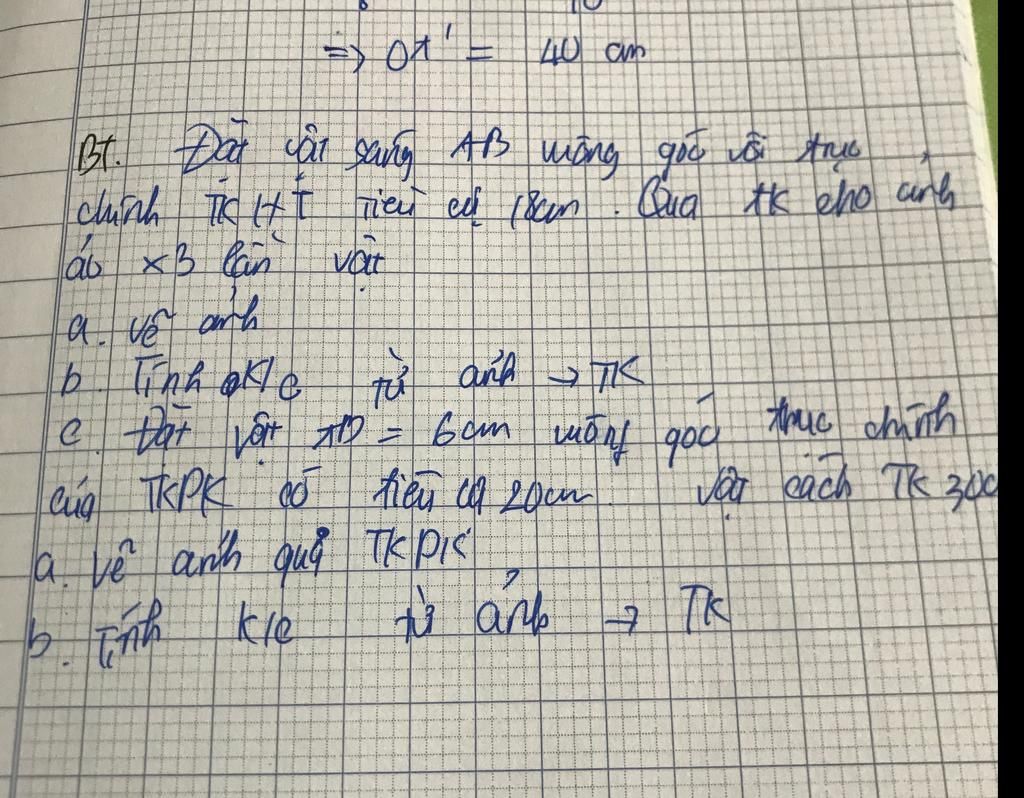 => OA' = 40 cm
Bt. Đặt vật sáng AB vuông góc với trục
chính TKHT tiêu cự 18cm. Qua tk cho ảnh
ảo x3 lần vật
a. vẽ ảnh
b. Tính k/c từ ảnh → TK
c. Đặt vật AB = 6cm vuông góc trục chính
của TKPK có tiêu cự 20cm. vật cách TK 30c
a. vẽ ảnh qua TKPK
b. Tính k/c từ ảnh → TK